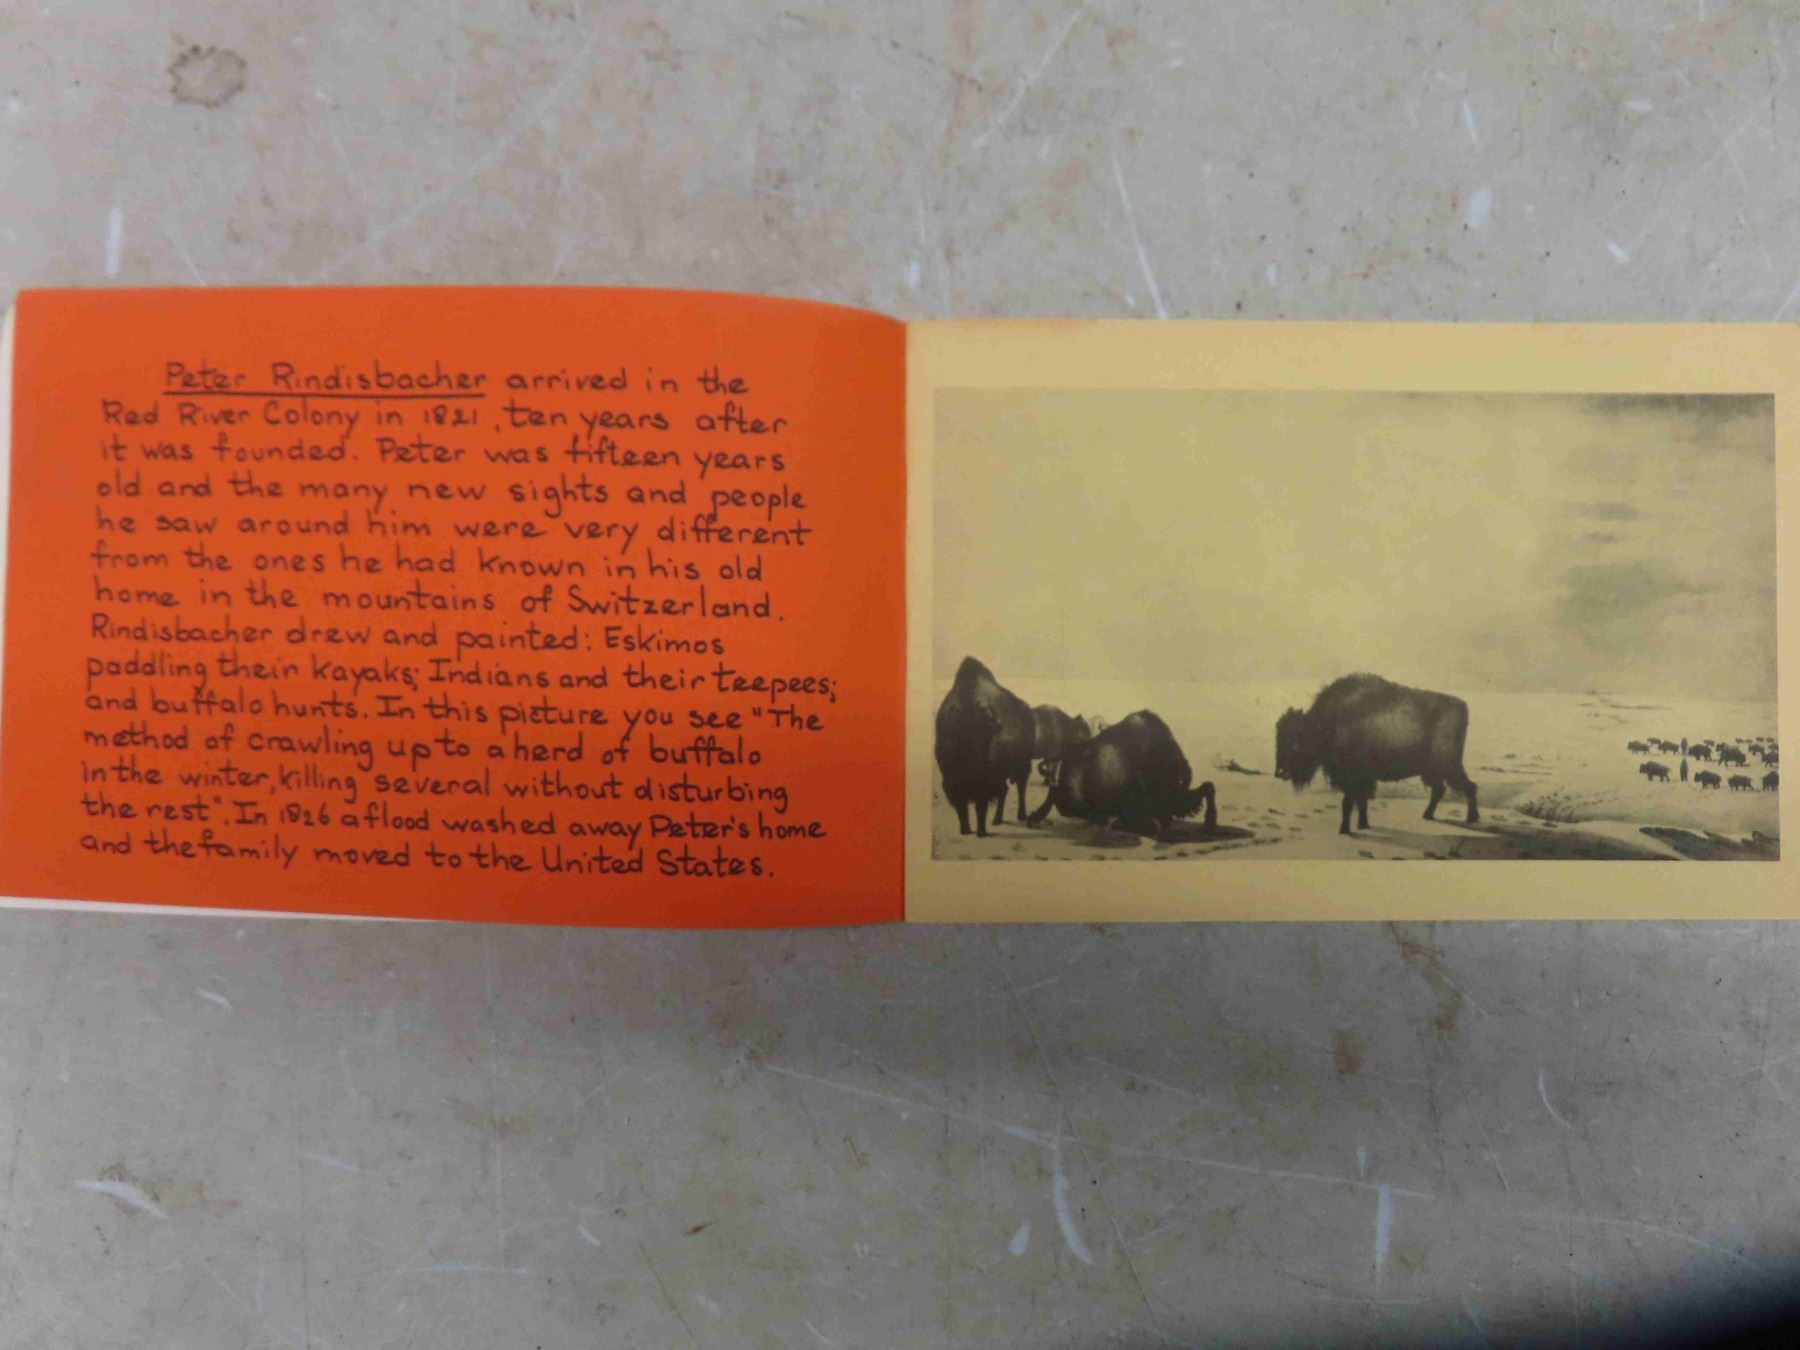 Peter Rindisbacher arrived in the
Red River Colony in 1821, ten years after
it was founded. Peter was fifteen years
old and the many new sights and people
he saw around him were very different
from the ones he had known in his old
home in the mountains of Switzerland.
Rindisbacher drew and painted: Eskimos
paddling their kayaks; Indians and their teepees;
and buffalo hunts. In this picture you see "The
method of crawling up to a herd of buffalo
in the winter, killing several without disturbing
the rest". In 1826 a flood washed away Peter's home
and the family moved to the United States.